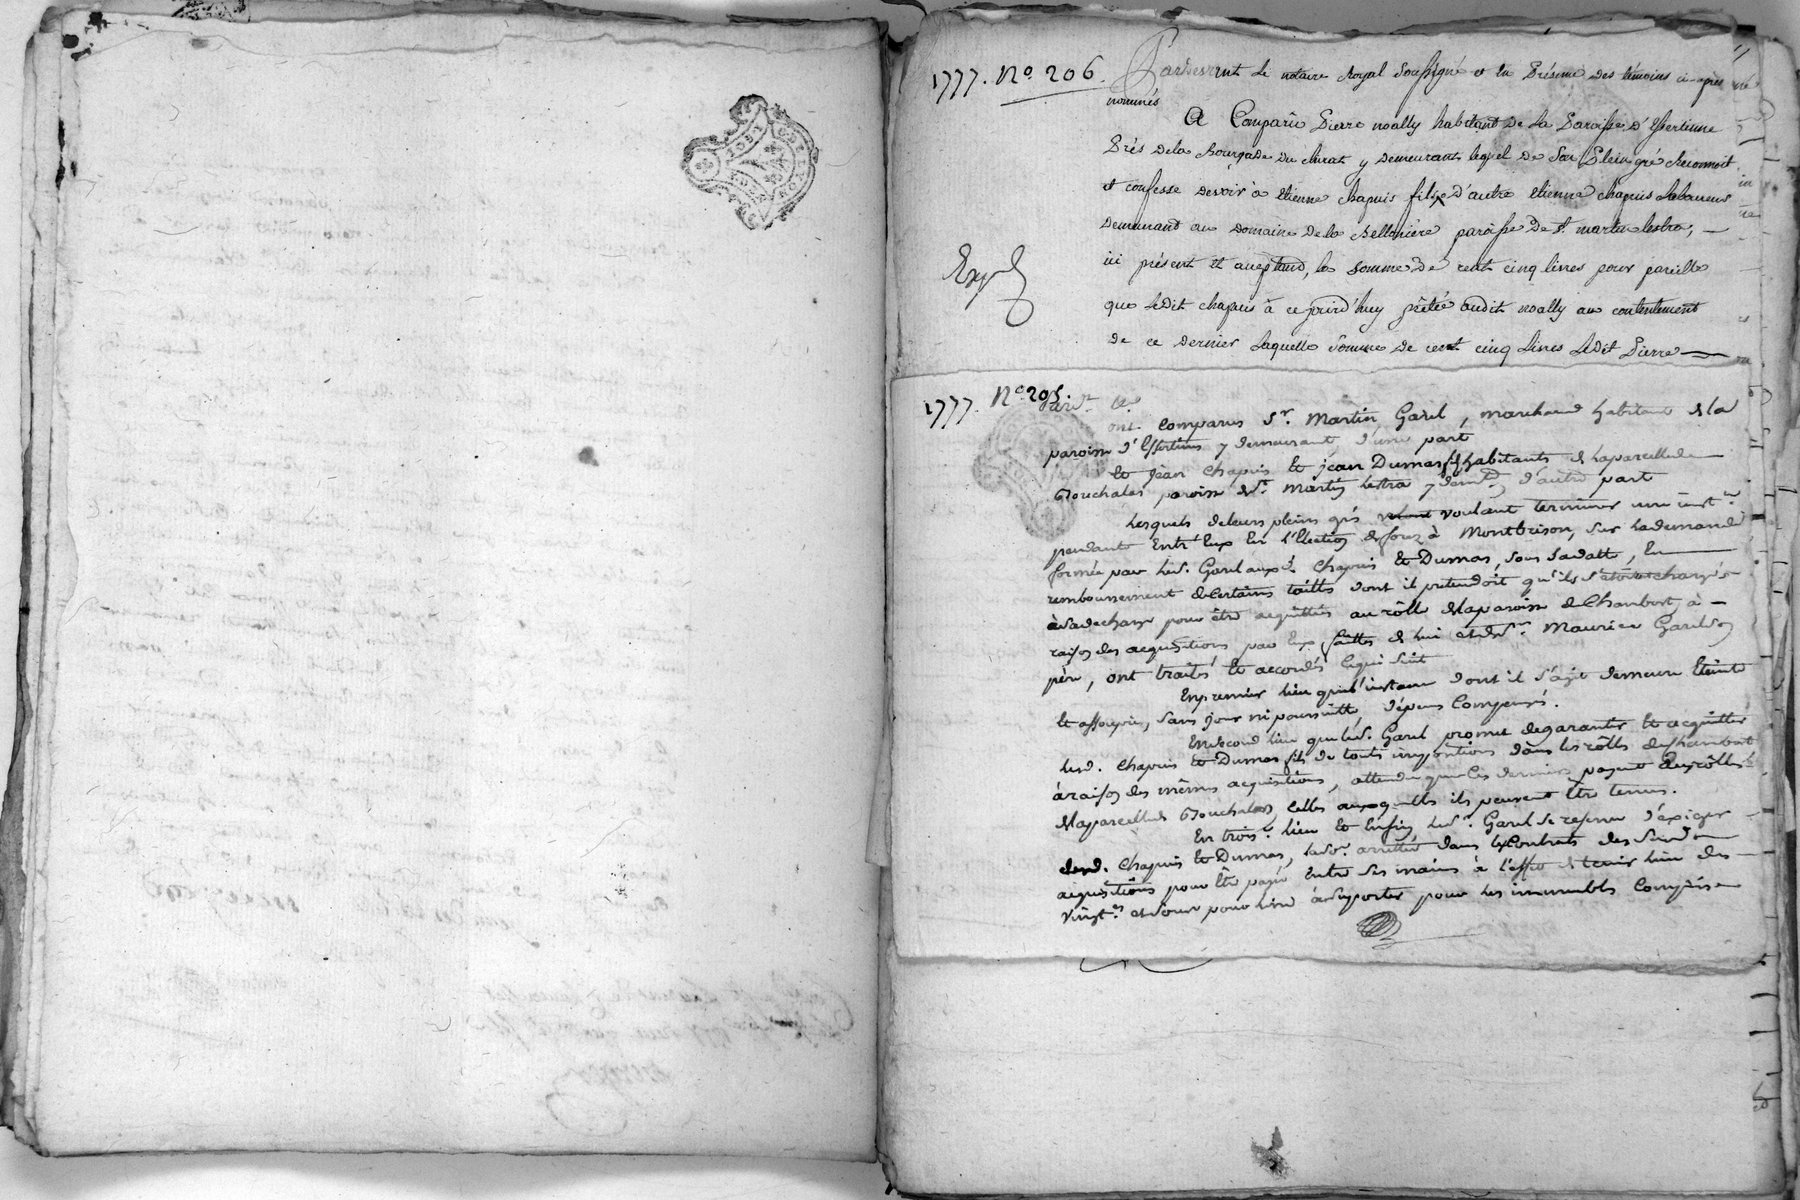 1777. N.o 206.
Pardevant le notaire Royal soussigné et en présence des témoins ci-après
nommés
A Comparû Pierre noally habitant de la Paroisse d'Essertinne
Près de la Bourgade du chirat y demeurant lequel de son Plein gré Reconnoit
et confesse devoir à etienne chapuis fils d'autre etienne chapuis Laboureur
Demeurant au Domaine de la Bellonière paroisse de St. martin lestra,
ici présent et acceptant, la somme de cent cinq livres pour pareille
que ledit chapuis à ce jourd'huy prêtée audit noally au contentement
de ce dernier Laquelle somme de cent cinq Livres ledit Pierre
Expd
1777. N.o 205.
Pard.t &c.
ont comparus Sr. Martin Garel, marchand habitant de la
paroisse d'Essertines y demeurant, d'une part
Et Jean Chapuis Et jean Dumas fils habitants de la parcelle de
Touchalas paroisse de St. Martin Lestra y demt. d'autre part
Lesquels de leurs pleins grés voulant terminer une inst.ce
pendante Entr'Eux En l'Election de forez à Montbrison, sur la demande
formée par led. Garel auxd. Chapuis Et Dumas, sous sa datte, En
remboursement de certaines tailles dont il prétendoit qu'ils s'étoient chargés
à sa décharge pour être acquittés au rôlle de la paroisse de Chambost, à
raison des acquisitions par Eux faittes de lui et de Sr. Maurice Garel son
père, ont traités Et accordés ce qui suit
En premier lieu que l'instance dont il s'agit demeure Eteinte
Et assoupie, sans jour ni poursuitte, dépens Compensés.
En second lieu que led. Garel promet de garantir Et acquitter
lesd. Chapuis Et Dumas fils de toutes impositions dans les rôlles de Chambost
à raison des mêmes acquisitions, attendu que ces derniers payent aux rôlles
de la parcelle de Touchalas, celles auxquelles ils peuvent être tenus.
En trois.e lieu Et Enfin, led. Garel se réserve d'exiger
desd. Chapuis Et Dumas, arrêtée dans les Contrats des
acquisitions pour Etre payée Entre ses mains à l'effet de tenir lieu des
vingt.es à supporter pour les immeubles Compris